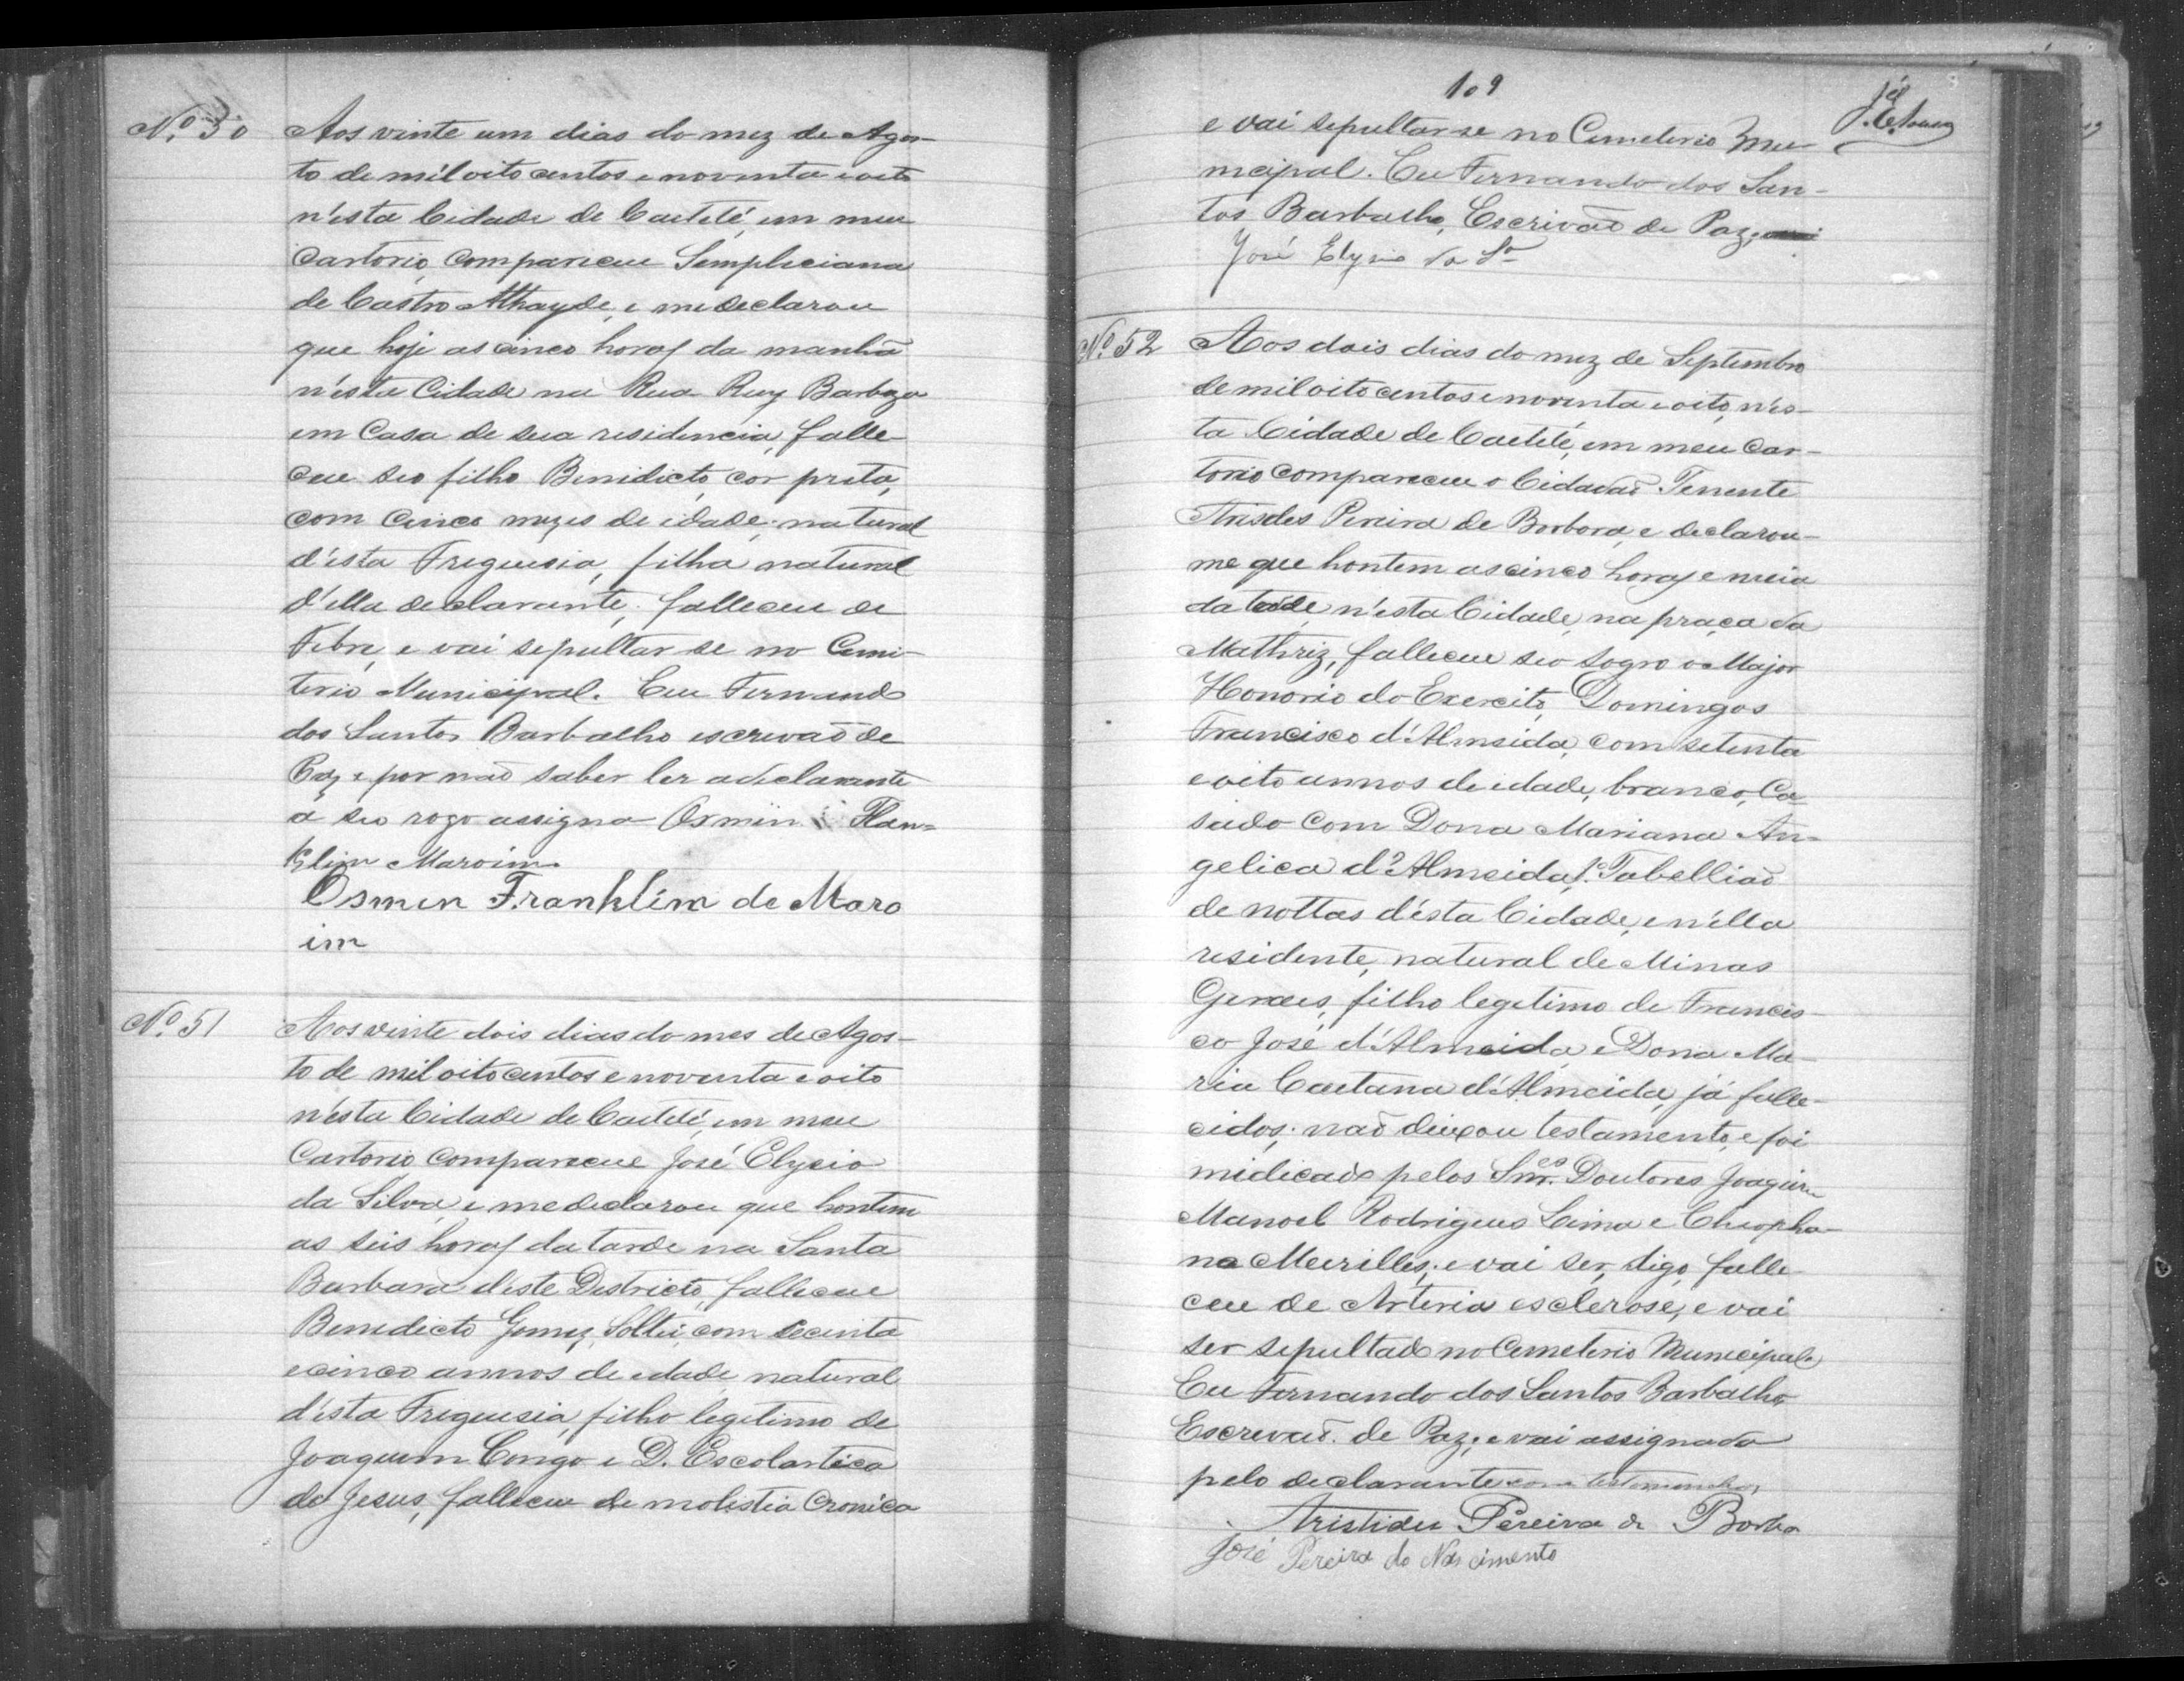 Nº 50
Aos vinte um dias do mez de Agos-
to de mil oito centos e noventa e oito
n'esta Cidade de Caeteté, em meu
Cartorio, compareceu Sempliciana
de Castro Athayde, e me declarou
que hoje as cinco horas da manhã
n'esta Cidade na Rua Ruy Barboza
em Casa de sua residencia, falle-
ceu seo filho Benidicto, cor preta,
com cinco mezes de idade; natural
d'esta Freguesia, filha natural
d'ella declarante; falleceu de
Febre, e vai sepultar-se no Cemi-
terio Municipal. Eu Fernando
dos Santos Barbalho escrevaõ de
Paz e por naõ saber ler a declarante
á seo rogo assigna Osmin Flan-
klim Maroim.
Osmen Franklim de Maro
im
Nº 51
Aos vinte dois dias do mes de Agos-
to de mil oito centos e noventa e oito
n'esta Cidade de Caeteté, em meu
Cartorio, compareceu José Elysio
da Silva, e me declarou que hontem
as seis horas da tarde na Santa
Barbara d'este Districto, falleceu
Benedicto Gomes, Soltei, com secenta
e cinco annos de edade, natural
d'esta Freguesia, filho legitimo de
Joaquim Congo e D. Escolastica
de Jesus, falleceu de molestia Cronica
109
e vai sepultar-se no Cemeterio Mu-
nicipal. Eu Fernando dos San-
tos Barbalho, Escrivaõ de Paz,
José Elysio da Sª
Nº 52
Aos dois dias do mez de Septembro
de mil oito centos e noventa e oito, n'es-
ta Cidade de Caeteté, em meu Car-
torio compareceu o Cidadaõ Tenente
Arisdes Pereira de Borbora, e declarou-
me que hontem as cinco horas e meia
da tarde, n'esta Cidade, na praça da
Mathriz, falleceu seo sogro o Major
Honorio do Exercito, Domingos
Francisco d'Almeida, com setenta
e oito annos de idade, branco, Ca-
sado com Dona Mariana An-
gelica d'Almeida, 1º Tabelliaõ
de nottas d'esta Cidade, e n'ella
residente, natural de Minas
Geraes, filho legitimo de Francis-
co José d'Almeida, e Dona Ma-
ria Caetana d'Almeida, já falle-
cidos; naõ deixou testamento, e foi
midicado pelos Snr.es Doutores Joaquim
Manoel Rodrigues Lima e Cleopha-
no Meirilles; e vai ser, digo, falle
ceu de Arteria esclerose, e vai
ser sepultado no Cemeterio Municipal.
Eu Fernando dos Santos Barbalho
Escrevaõ de Paz; e vai assignado
pelo declarante com testemunhas,
Aristides Pereira de Borba
José Pereira do Nascimento